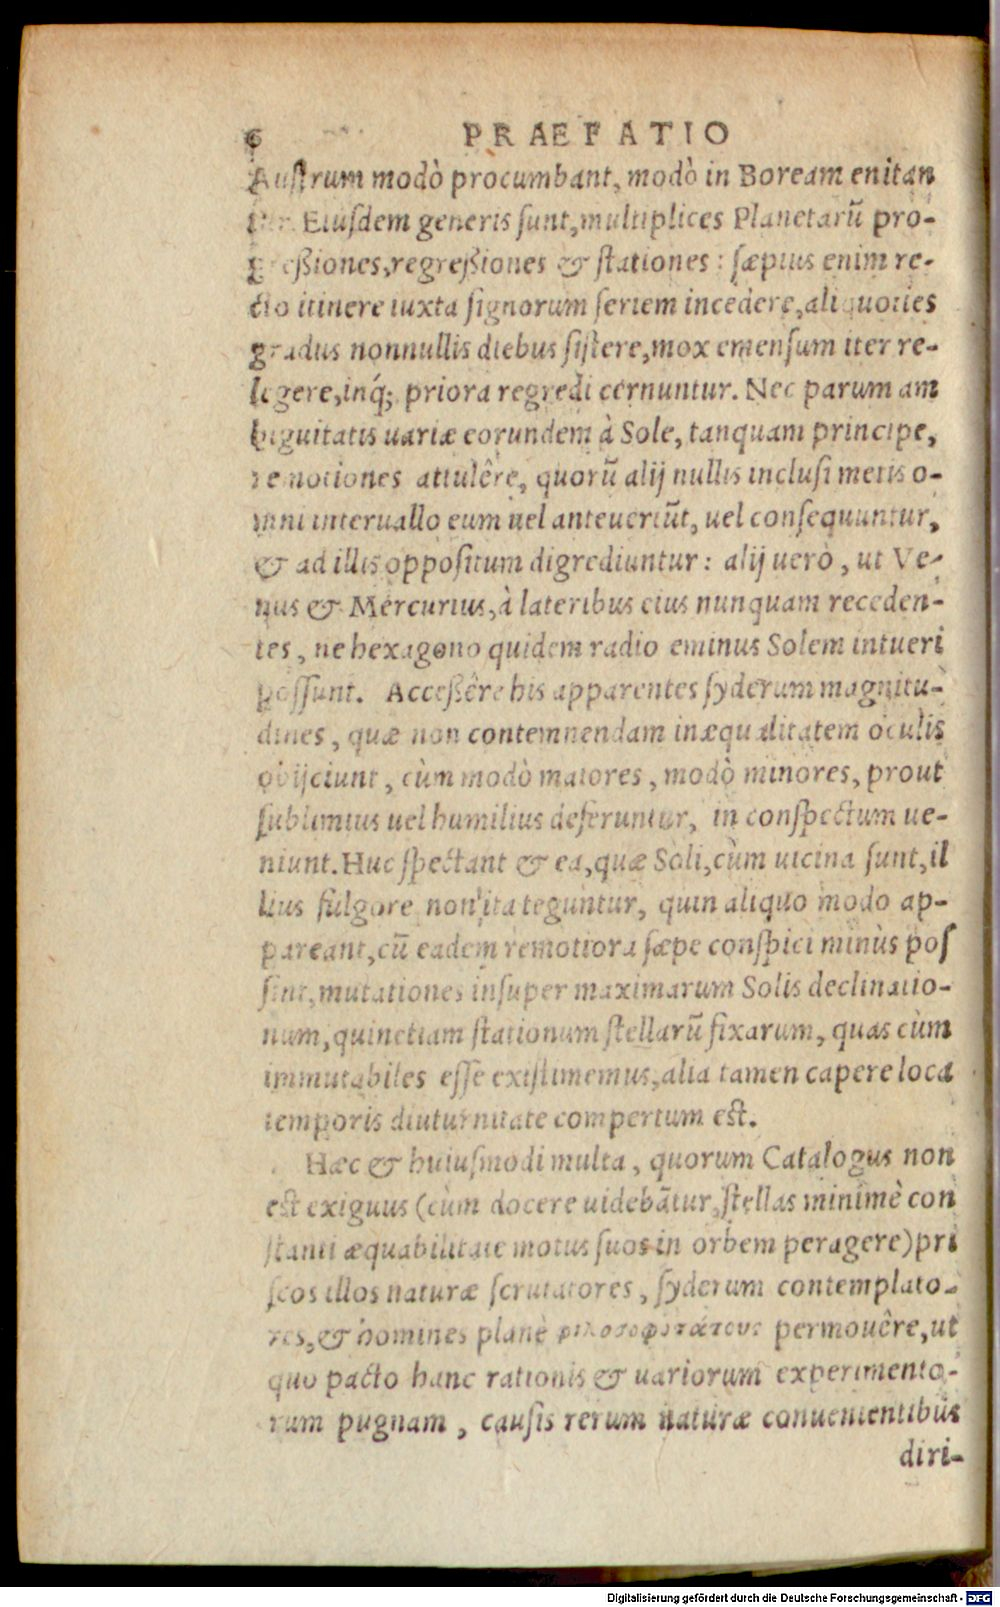 6 PRAEFATIO
Auſtrum modò procumbant, modò in Boream enitan
tur. Eiuſdem generis ſunt, multiplices Planetarũ pro-
greßiones, regreßiones & ſtationes: ſæpius enim re-
cto itinere iuxta ſignorum ſeriem incedere, aliquoties
gradus nonnullis diebus ſiſtere, mox emenſum iter re-
legere, inq́; priora regredi cernuntur. Nec parum am
biguitatis uariæ eorundem à Sole, tanquam principe,
remotiones attulêre, quorũ alij nullis incluſi metis o-
mni interuallo eum uel anteueriũt, uel conſequuntur,
& ad illis oppoſitum digrediuntur: alij uerò, ut Ve-
nus & Mercurius, à lateribus eius nunquam receden-
tes, ne hexagono quidem radio eminus Solem intueri
poſſunt. Acceßêre his apparentes ſyderum magnitu-
dines, quæ non contemnendam inæqualitatem oculis
obijciunt, cùm modò maiores, modò minores, prout
ſublimius uel humilius deferuntur, in conſpectum ue-
niunt. Huc ſpectant & ea, quæ Soli, cùm uicina ſunt, il
lius fulgore non ita teguntur, quin aliquo modo ap-
pareant, cũ eadem remotiora ſæpe conſpici minùs poſ
ſint, mutationes inſuper maximarum Solis declinatio-
num, quinetiam ſtationum ſtellarũ fixarum, quas cùm
immutabiles eſſe exiſtimemus, alia tamen capere loca
temporis diuturnitate compertum eſt.
Hæc & huiuſmodi multa, quorum Catalogus non
eſt exiguus (cùm docere uidebãtur, ſtellas minimè con
ſtanti æquabilitate motus ſuos in orbem peragere) pri
ſcos illos naturæ ſcrutatores, ſyderum contemplato-
res, & homines planè φιλοσοφωτάτους permouêre, ut
quo pacto hanc rationis & uariorum experimento-
rum pugnam, cauſis rerum naturæ conuenientibus
diri-
Digitalisierung gefördert durch die Deutsche Forschungsgemeinschaft - DFG